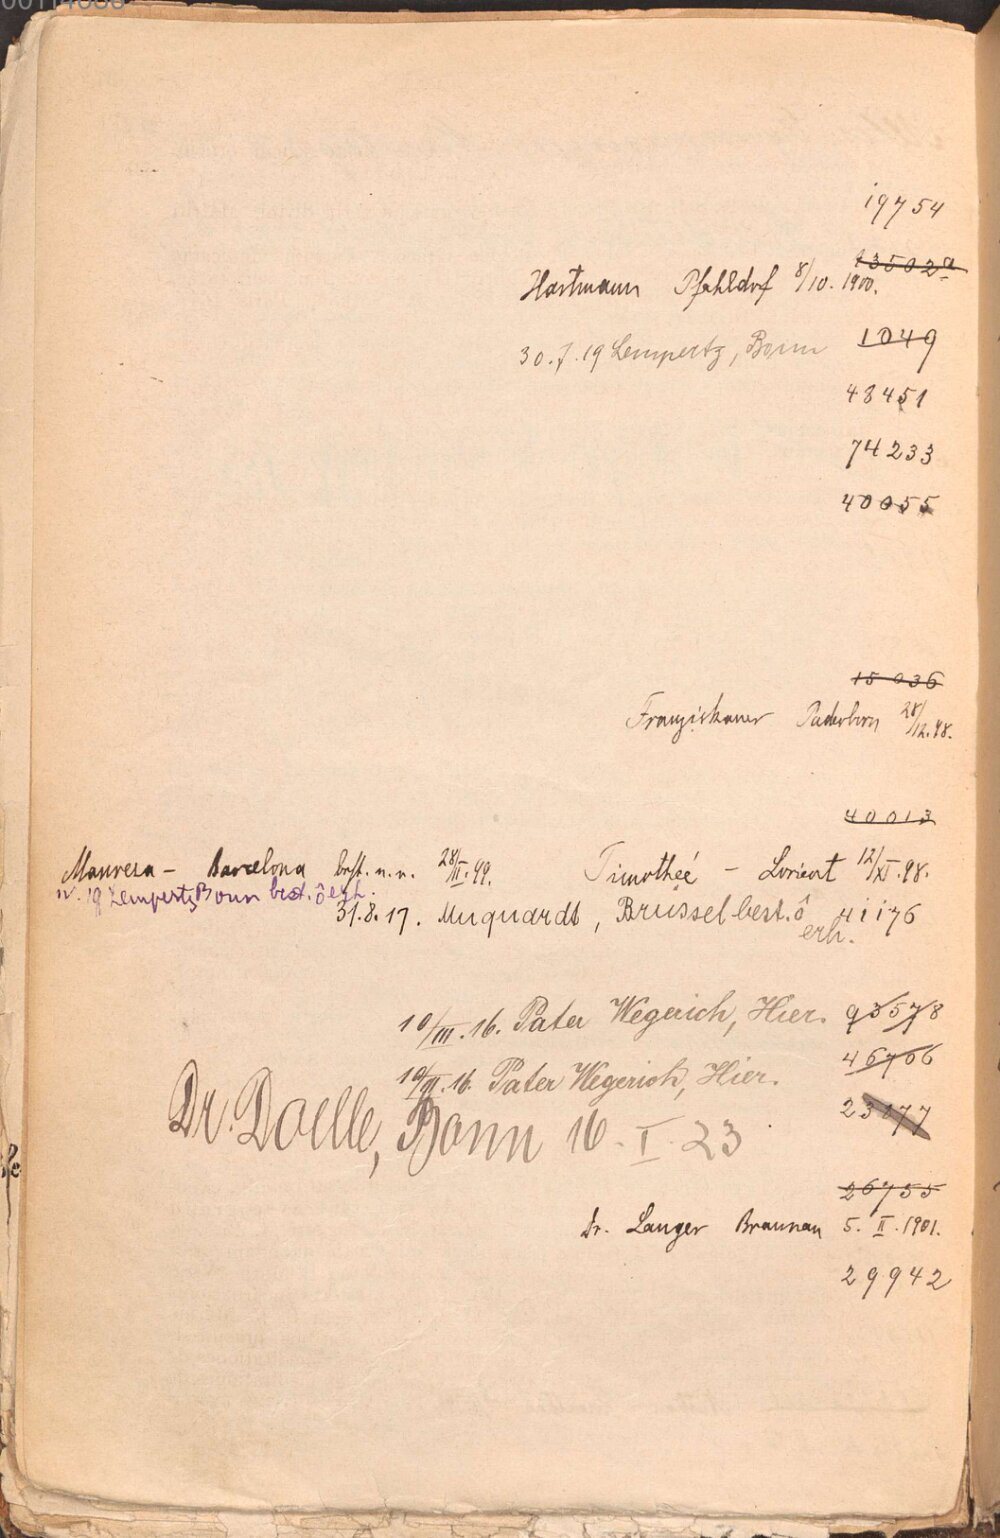 19754
13502a
Hartmann Pfahldorf 8/10. 1900.
30.7.19 Lempertz, Bonn 1049
48451
74233
40055
15036
Franziskaner Paderborn 28/12.98.
40013
Manresa - Barcelona best. n. n. 28/III.99. Timotheé - Lorient 12/XI.98.
19 Lempertz, Bonn best. ō erh.
31.8.17. Muquardt, Brüssel best. ō erh. 41176
10/III.16. Pater Wegerich, Hier. 93578
46766
10/III.16. Pater Wegerich, Hier.
23177
Dr. Doelle, Bonn 16. I. 23
26755
Dr. Langer Braunau 5. II. 1901.
29942